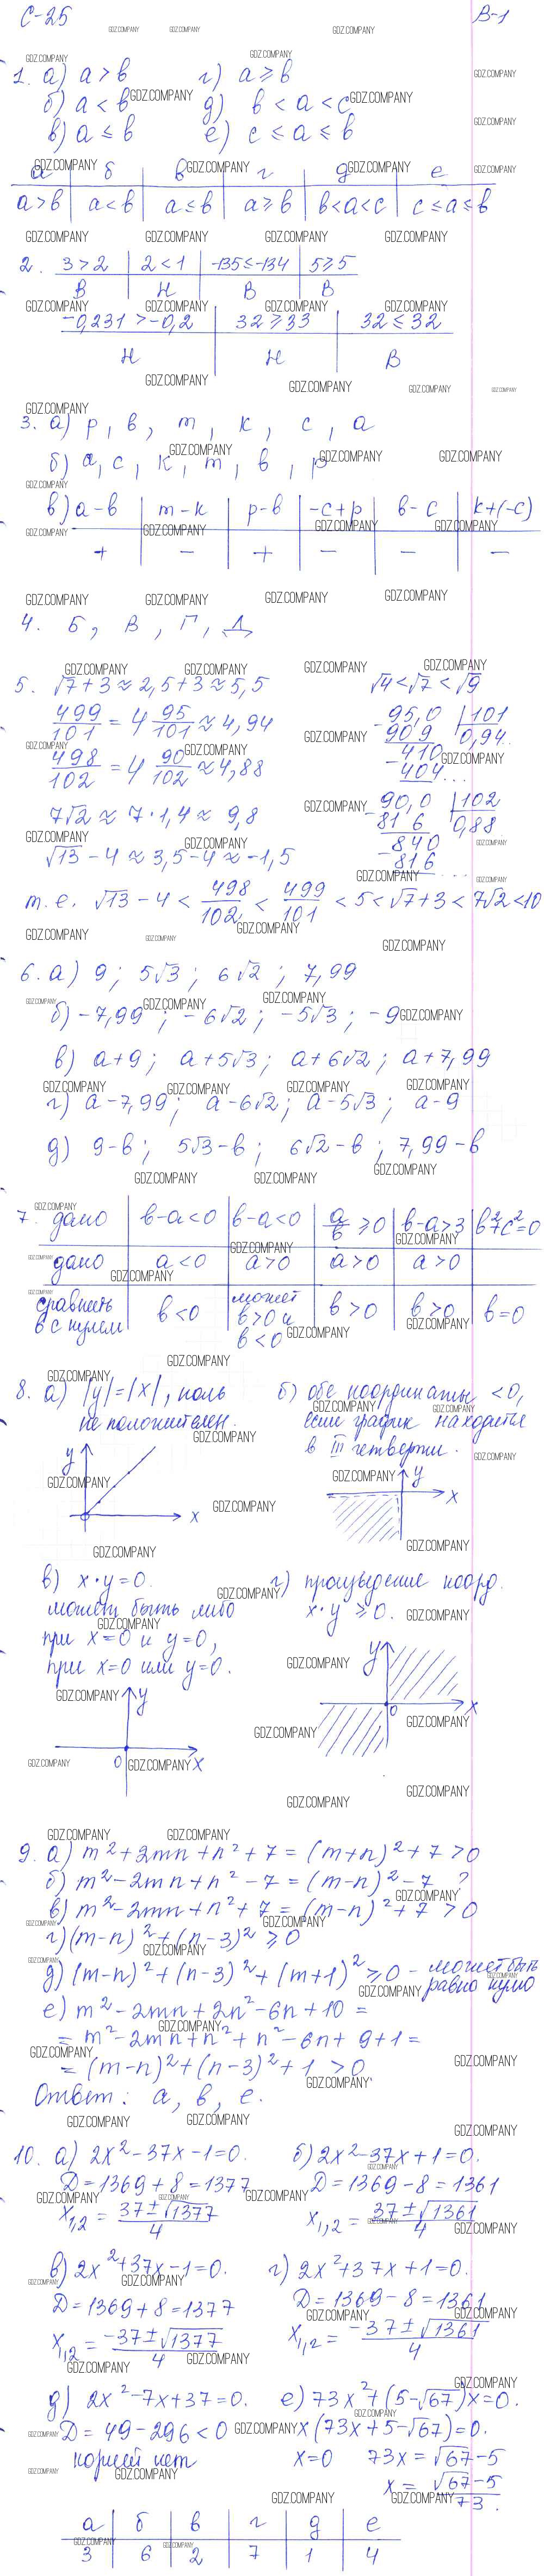 С-25 В-1
1. а) a > b г) a ≥ b
б) a < b д) b < a < c
в) a ≤ b е) c ≤ a ≤ b
а б в г д е
a>b a<b a≤b a≥b b<a<c c≤a≤b
2. 3>2 2<1 -135≤-134 5≥5
В Н В В
-0,231>-0,2 32≥33 32≤32
Н Н В
3. а) p, b, m, k, c, a
б) a, c, k, m, b, p
в) a-b m-k p-b -c+p b-c k+(-c)
+ - + - - -
4. Б, В, Г, Д
5. √7+3≈2,5+3≈5,5 √4<√7<√9
499/101 = 4 95/101 ≈ 4,94
95,0 101
909 0,94..
410
404...
498/102 = 4 90/102 ≈ 4,88
90,0 102
816 0,88..
840
816...
7√2 ≈ 7·1,4 ≈ 9,8
√13-4≈3,5-4≈-1,5
т.е. √13-4 < 498/102 < 499/101 < 5 < √7+3 < 7√2 < 10
6. а) 9; 5√3; 6√2; 7,99
б) -7,99; -6√2; -5√3; -9
в) a+9; a+5√3; a+6√2; a+7,99
г) a-7,99; a-6√2; a-5√3; a-9
д) 9-b; 5√3-b; 6√2-b; 7,99-b
7. дано b-a<0 b-a<0 a/b≥0 b-a>3 b²+c²=0
дано a<0 a>0 a>0 a>0
сравнить b с нулем b<0 может b>0 и b<0 b>0 b>0 b=0
8. а) |y|=|x|, ноль
не положителен.
y
x
б) обе координаты <0,
если график находится
в III четверти.
y
x
в) x·y=0.
может быть либо
при x=0 и y=0,
при x=0 или y=0.
y
0 x
г) произведение коорд.
x·y≥0.
y
0 x
9. а) m²+2mn+n²+7=(m+n)²+7>0
б) m²-2mn+n²-7=(m-n)²-7 ?
в) m²-2mn+n²+7=(m-n)²+7>0
г) (m-n)²+(n-3)²≥0
д) (m-n)²+(n-3)²+(m+1)²≥0 - может быть
равно нулю
е) m²-2mn+2n²-6n+10=
=m²-2mn+n²+n²-6n+9+1=
=(m-n)²+(n-3)²+1>0
Ответ: а, в, е.
10. а) 2x²-37x-1=0. б) 2x²-37x+1=0.
Д=1369+8=1377 Д=1369-8=1361
x₁,₂=(37±√1377)/4 x₁,₂=(37±√1361)/4
в) 2x²+37x-1=0. г) 2x²+37x+1=0.
Д=1369+8=1377 Д=1369-8=1361
x₁,₂=(-37±√1377)/4 x₁,₂=(-37±√1361)/4
д) 2x²-7x+37=0. е) 73x²+(5-√67)x=0.
Д=49-296<0 x(73x+5-√67)=0.
корней нет x=0 73x=√67-5
x=(√67-5)/73.
а б в г д е
3 6 2 7 1 4
GDZ.COMPANY